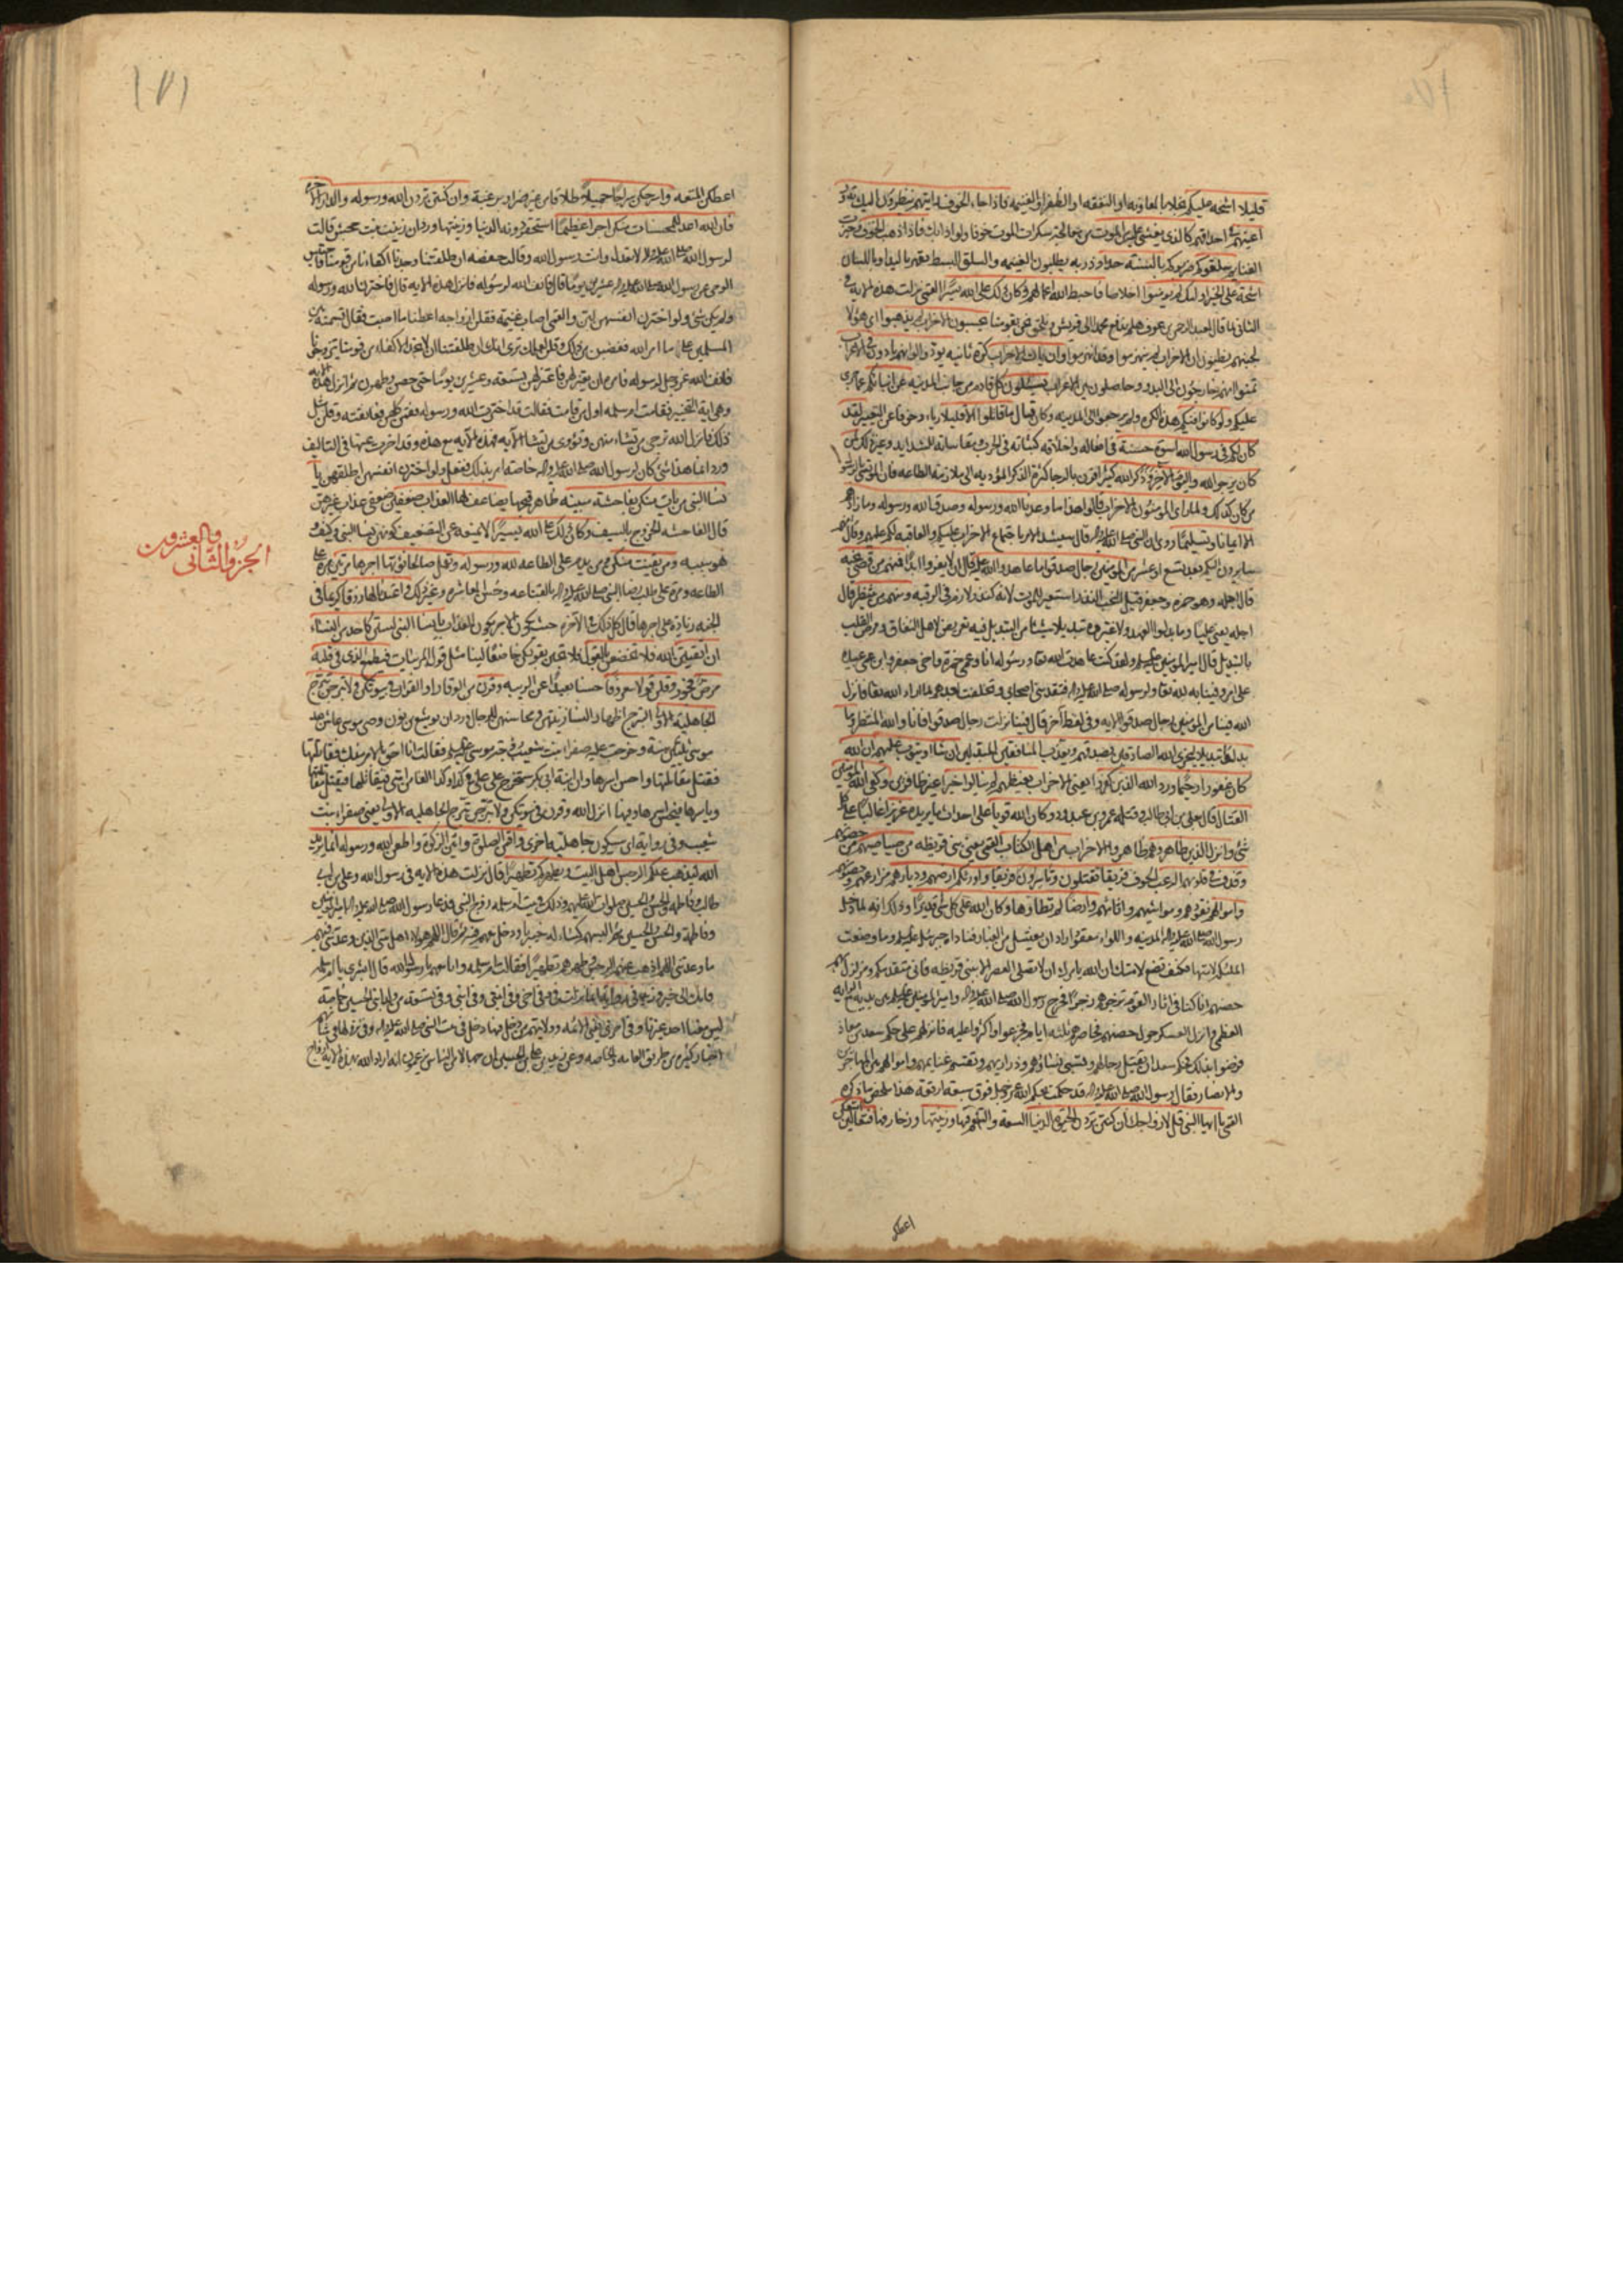 قليلا اشحة عليكم بخلاء بالمعاونة او النفقة او الظفر او الغنيمة فاذا جاء الخوف رايتهم ينظرون اليك تدور
اعينهم احداقهم كالذي يغشى عليه من الموت من معالجة سكرات الموت خوفا ولواذا بك فاذا ذهب الخوف وحيزت
الغنايم سلقوكم ضربوكم بالسنة حداد ذربة يطلبون الغنيمة والسلق البسط بقهر باليد او باللسان
اشحة على الخير اولئك لم يومنوا اخلاصا فاحبط الله اعمالهم وكان ذلك على الله يسيرا القمي نزلت هذه الاية في
الثاني لما قال لعبد الرحمن بن عوف هلم ندفع محمدا الى قريش ونلحق نحن بقومنا يحسبون الاحزاب لم يذهبوا اي هؤلا
لجبنهم يظنون ان الاحزاب لم ينهزموا وقد انهزموا وان يات الاحزاب كرة ثانية يودوا لو انهم بادون في الاعراب
تمنوا انهم خارجون الى البدو وحاصلون بين الاعراب يسئلون كل قادم من جانب المدينة عن انبائكم عما جرى
عليكم ولو كانوا فيكم هذه الكرة ولم يرجعوا الى المدينة وكان قتال ما قاتلوا الا قليلا رياء وخوفا عن التعيير لقد
كان لكم في رسول الله اسوة حسنة في افعاله واخلاقه كثباته في الحرب ومقاساته للشدايد وغير ذلك لمن
كان يرجو الله واليوم الاخر وذكر الله كثيرا قرن بالرجا كثرة الذكر المؤدية الى ملازمة الطاعة فان المؤتسي بالرسول
من كان كذلك ولما راى المؤمنون الاحزاب قالوا هذا ما وعدنا الله ورسوله وصدق الله ورسوله وما زادهم
الا ايمانا وتسليما روي ان النبي صلى الله عليه واله قال سيشتد الامر باجتماع الاحزاب عليكم والعاقبة لكم عليهم وقال انهم
سايرون اليكم بعد تسع او عشر من المؤمنين رجال صدقوا ما عاهدوا الله عليه قال ان لا يفروا ابدا فمنهم من قضى نحبه
قال اجله وهو حمزة وجعفر قيل النحب النذر استعير للموت لانه كنذر لازم في الرقبة ومنهم من ينتظر قال
اجله يعني عليا وما بدلوا العهد ولا غيروه تبديلا شيئا من التبديل فيه تعريض لاهل النفاق ومرض القلب
بالتبديل قال امير المؤمنين عليه السلم ولقد كنت عاهدت الله تعالى ورسوله انا وعمي حمزة واخي جعفر وابن عمي عبيدة
على امر وفينا به لله تعالى ولرسوله صلى الله عليه واله فتقدمني اصحابي وتخلفت بعدهم لما اراد الله تعالى فانزل
الله فينا من المؤمنين رجال صدقوا الاية وفي لفظ آخر قال فينا نزلت رجال صدقوا فانا والله المنتظر وما
بدلت تبديلا ليجزي الله الصادقين بصدقهم ويعذب المنافقين المبدلين ان شاء او يتوب عليهم ان الله
كان غفورا رحيما ورد الله الذين كفروا يعني الاحزاب بغيظهم لم ينالوا خيرا غير ظافرين وكفى الله المؤمنين
القتال قال بعلي بن ابي طالب وقتله عمرو بن عبد ود وكان الله قويا على احداث ما يريده عزيزا غالبا على كل
شئ وانزل الذين ظاهروهم ظاهروا الاحزاب من اهل الكتاب القمي يعني بني قريظة من صياصيهم من حصونهم
وقذف في قلوبهم الرعب الخوف فريقا تقتلون وتاسرون فريقا واورثكم ارضهم وديارهم مزارعهم وحصونهم
واموالهم نقودهم ومواشيهم واثاثهم وارضا لم تطاوها وكان الله على كل شئ قديرا وذلك انه لما دخل
رسول الله صلى الله عليه واله المدينة واللواء معقود اراد ان يغتسل من الغبار فناداه جبرئيل عليه السلم ما وضعت
الملئكة لامتها فكيف تضع لامتك ان الله يامرك ان لا تصلي العصر الا ببني قريظة فاني متقدمكم ومزلزل بهم
حصنهم انا كنا في اثار القوم نزجرهم زجرا فخرج رسول الله صلى الله عليه واله وامير المؤمنين عليه السلم بين يديه مع الراية
العظمى وانزل العسكر حول حصنهم فحاصرهم ثلثة ايام فجزعوا واكرهوا عليه فانزلهم على حكم سعد بن معاذ
فرضوا بذلك فحكم سعد ان يقتل رجالهم وتسبى نساؤهم وذراريهم وتقسم غنايمهم واموالهم بين المهاجرين
والانصار فقال رسول الله صلى الله عليه واله قد حكمت بحكم الله عز وجل فوق سبعة ارقعة هذا ملخص ما ذكره
القمي يا ايها النبي قل لازواجك ان كنتن تردن الحيوة الدنيا السعة والتنعم فيها وزينتها وزخارفها فتعالين امتعكن
اعطكن
(١٧١
اعطكن المتعة واسرحكن سراحا جميلا طلاقا من غير ضرار وبرغبة وان كنتن تردن الله ورسوله والدار الاخرة
فان الله اعد للمحسنات منكن اجرا عظيما تستحقر دونه الدنيا وزينتها ورد ان زينب بنت جحش قالت
لرسول الله صلى الله عليه واله لا تعدل وانت رسول الله وقالت حفصة ان طلقتنا وجدنا اكفاءنا من قومنا فاحتبس
الوحي عن رسول الله صلى الله عليه واله عشرين يوما قال فانف الله لرسوله فانزل هذه الاية قال فاخترن الله ورسوله
ولم يكن شئ ولو اخترن انفسهن لبن والقمي اصاب غنيمة فقلن ازواجه اعطنا ما اصبت فقال قسمته بين
المسلمين على ما امر الله فغضبن من ذلك وقلن لعلك ترى انك ان طلقتنا ان لا نجد الاكفاء من قومنا يتزوجونا
فانف الله عز وجل لرسوله فامره ان يعتزلهن فاعتزلهن تسعة وعشرين يوما حتى حضن وطهرن ثم انزل هذه الاية
وهي اية التخيير فقامت ام سلمة اول من قامت فقالت قد اخترت الله ورسوله فقمن كلهن فعانقنه وقلن مثل
ذلك فانزل الله ترجي من تشاء منهن وتؤوي من تشاء الاية فهذه الاية مع هذه وقد اخرت عنها في التاليف
ورد انما هذا شئ كان لرسول الله صلى الله عليه واله خاصة امر بذلك ففعل ولو اخترن انفسهن لطلقهن يا
نساء النبي من يات منكن بفاحشة مبينة ظاهر قبحها يضاعف لها العذاب ضعفين ضعفي عذاب غيرهن
قال الفاحشة الخروج بالسيف وكان ذلك على الله يسيرا لا يمنعه عن التضعيف كونهن نساء النبي وكيف
هو سببه ومن يقنت منكن ومن يدم على الطاعة لله ورسوله وتعمل صالحا نؤتها اجرها مرتين مرة على
الطاعة ومرة على طلب رضا النبي صلى الله عليه واله بالقناعة وحسن المعاشرة وغير ذلك واعتدنا لها رزقا كريما في
الجنة زيادة على اجرها قال كل ذلك في الآخرة حيث يكون الاجر يكون العذاب يا نساء النبي لستن كاحد من النساء
ان اتقيتن الله فلا تخضعن بالقول فلا تجئن بقولكن خاضعا لينا مثل قول المريبات فيطمع الذي في قلبه
مرض فجور وقلن قولا معروفا حسنا بعيدا عن الريبة وقرن من الوقار او القرار في بيوتكن ولا تبرجن تبرج
الجاهلية الاولى التبرج اظهار النساء زينتهن ومحاسنهن للرجال ورد ان يوشع بن نون وصي موسى عاش بعد
موسى ثلثين سنة وخرجت عليه صفراء بنت شعيب زوجة موسى عليه السلم فقالت انا احق بالامر منك فقاتلها
فقتل مقاتلتها واحسن اسرها وان ابنة ابي بكر ستخرج على علي في كذا وكذا الفا من امتي فيقاتلها فيقتل مقاتلتها
وياسرها فيحسن اسرها وفيها انزل الله وقرن في بيوتكن ولا تبرجن تبرج الجاهلية الاولى يعني صفراء بنت
شعيب وفي رواية اي سيكون جاهلية اخرى واقمن الصلوة واتين الزكوة واطعن الله ورسوله انما يريد
الله ليذهب عنكم الرجس اهل البيت ويطهركم تطهيرا قال نزلت هذه الاية في رسول الله وعلي بن ابي
طالب وفاطمة والحسن والحسين صلوات الله عليهم وذلك في بيت ام سلمة زوج النبي فدعا رسول الله صلى الله عليه واله امير المؤمنين
وفاطمة والحسن والحسين ثم البسهم كساء له خيبريا ودخل معهم فيه ثم قال اللهم هؤلاء اهل بيتي الذين وعدتني فيهم
ما وعدتني اللهم اذهب عنهم الرجس وطهرهم تطهيرا فقالت ام سلمة وانا معهم يا رسول الله قال ابشري يا ام سلمة
فانك الى خير وفي رواية انما نزلت في وفي اخي وفي ابنتي وفي ابني وفي تسعة من ولد ابني الحسين خاصة
ليس معنا احد غيرنا وفي اخرى يعني الائمة وولايتهم من دخل فيها دخل في بيت النبي صلى الله عليه واله وفي نزولها في شانهم
اخبار كثيرة من طريق العامة والخاصة وعن زيد بن علي بن الحسين ان جهالا من الناس يزعمون انه اراد الله بهذه الاية ازواج
الجزو الثاني
والعشرون